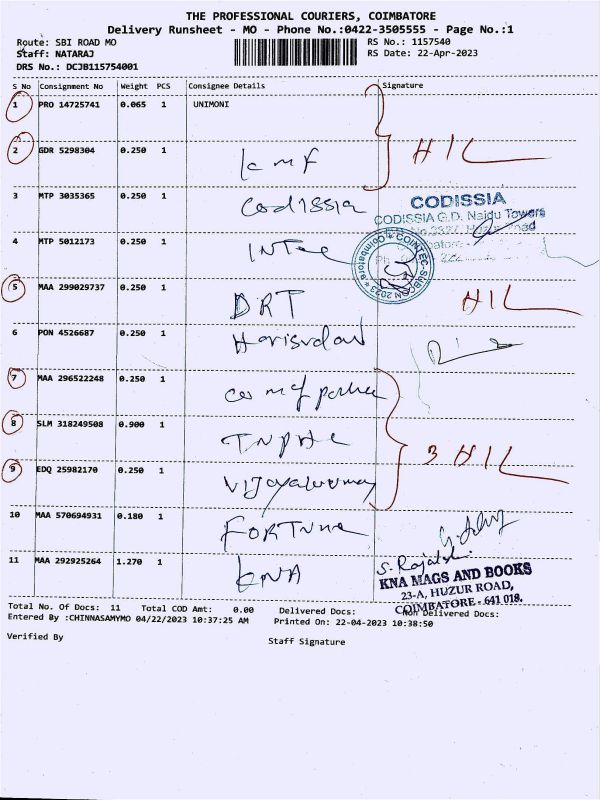 THE PROFESSIONAL COURIERS, COIMBATORE
Delivery Runsheet - MO - Phone No.:0422-3505555 - Page No.:1
Route: SBI ROAD MO RS No.: 1157540
Staff: NATARAJ RS Date: 22-Apr-2023
DRS No.: DCJB115754001
S No Consignment No Weight PCS Consignee Details Signature
1 PRO 14725741 0.065 1 UNIMONI
2 GDR 5298304 0.250 1 kmf HIL
3 MTP 3035365 0.250 1 Codissia CODISSIA
CODISSIA G.D. Naidu Towers
4 MTP 5012173 0.250 1 COINTEC-SUBCON 2023 Coimbatore
5 MAA 299029737 0.250 1 DRT HIL
6 PON 4526687 0.250 1
7 MAA 296522248 0.250 1
8 SLM 318249508 0.900 1 3 HIL
9 EDQ 25982170 0.250 1
10 MAA 570694931 0.180 1 FORTUNE
11 MAA 292925264 1.270 1 KNA
KNA MAGS AND BOOKS
23-A, HUZUR ROAD,
COIMBATORE - 641 018.
Total No. Of Docs: 11 Total COD Amt: 0.00 Delivered Docs: Non Delivered Docs:
Entered By :CHINNASAMYMO 04/22/2023 10:37:25 AM Printed On: 22-04-2023 10:38:50
Verified By Staff Signature